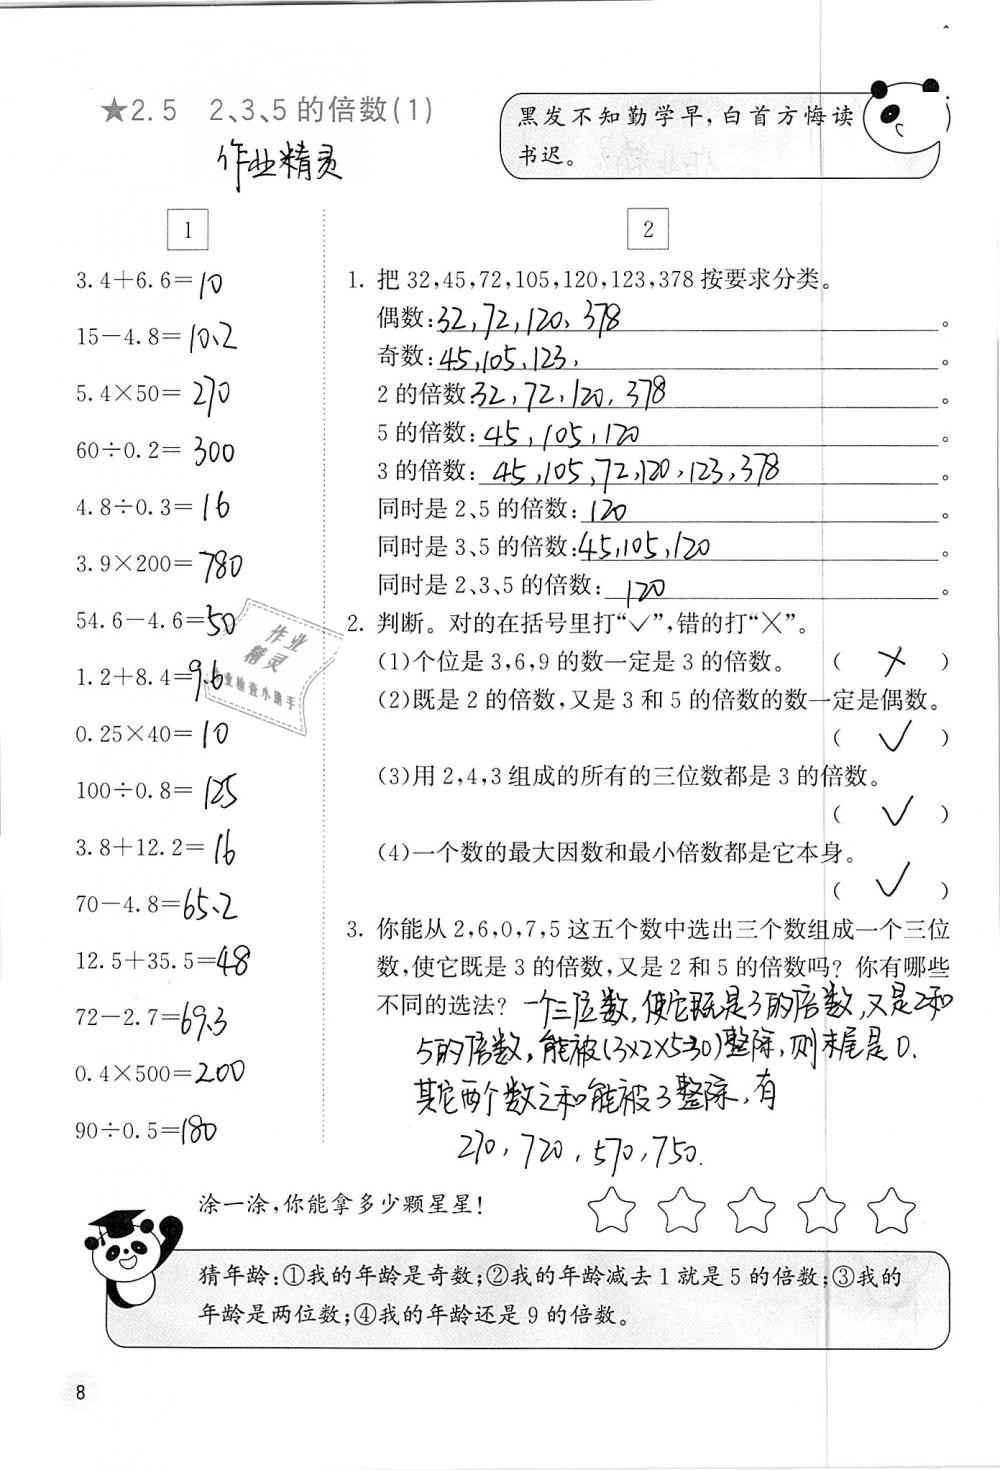 ★2.5 2、3、5的倍数(1)
作业精灵
黑发不知勤学早，白首方悔读
书迟。
1
3.4+6.6=10
15-4.8=10.2
5.4×50=270
60÷0.2=300
4.8÷0.3=16
3.9×200=780
54.6-4.6=50
1.2+8.4=9.6
0.25×40=10
100÷0.8=125
3.8+12.2=16
70-4.8=65.2
12.5+35.5=48
72-2.7=69.3
0.4×500=200
90÷0.5=180
作业
精灵
作业检查小助手
2
1. 把32,45,72,105,120,123,378按要求分类。
偶数:32,72,120,378。
奇数:45,105,123,。
2的倍数:32,72,120,378。
5的倍数:45,105,120。
3的倍数:45,105,72,120,123,378。
同时是2、5的倍数:120。
同时是3、5的倍数:45,105,120。
同时是2、3、5的倍数:120。
2. 判断。对的在括号里打“✓”,错的打“×”。
(1)个位是3,6,9的数一定是3的倍数。 ( × )
(2)既是2的倍数,又是3和5的倍数的数一定是偶数。
( ✓ )
(3)用2,4,3组成的所有的三位数都是3的倍数。
( ✓ )
(4)一个数的最大因数和最小倍数都是它本身。
( ✓ )
3. 你能从2,6,0,7,5这五个数中选出三个数组成一个三位
数,使它既是3的倍数,又是2和5的倍数吗? 你有哪些
不同的选法? 一个三位数,使它既是3的倍数,又是2和
5的倍数,能被(3×2×5=30)整除,则末尾是0.
其它两个数之和能被3整除,有
270,720,570,750.
涂一涂,你能拿多少颗星星!
猜年龄:①我的年龄是奇数;②我的年龄减去1就是5的倍数;③我的
年龄是两位数;④我的年龄还是9的倍数。
8